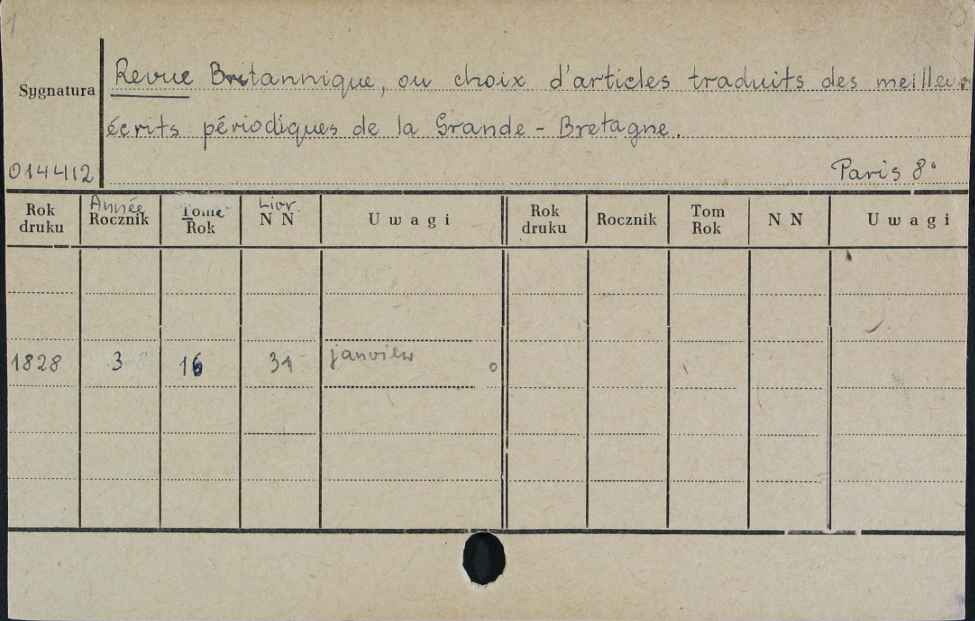 1
Revue Britannique, ou choix d'articles traduits des meilleur
Sygnatura
écrits périodiques de la Grande-Bretagne.
014412
Paris 8°
Rok druku Année Rocznik Tome Rok Livr. N N Uwagi Rok druku Rocznik Tom Rok N N Uwagi
1828 3 16 31 janvier